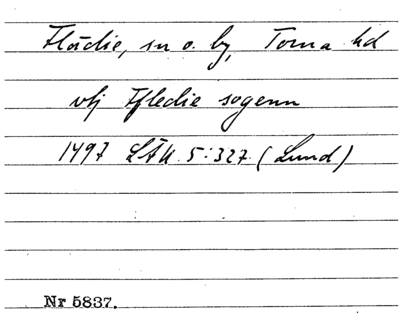 Flädie, sn o. by, Torna hd
vtj Ffledie sogenn
1497 LÄU 5:327 (Lund)
Nr 5837.